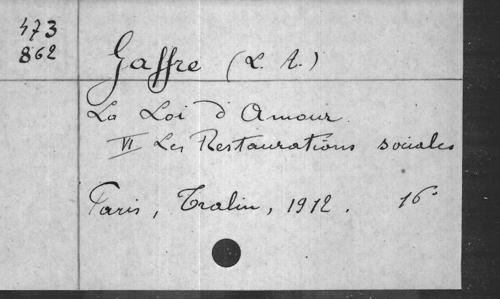 473
862
Gaffre (L. A.)
La Loi d'Amour.
VI Les Restaurations sociales
Paris, Tralin, 1912. 16°